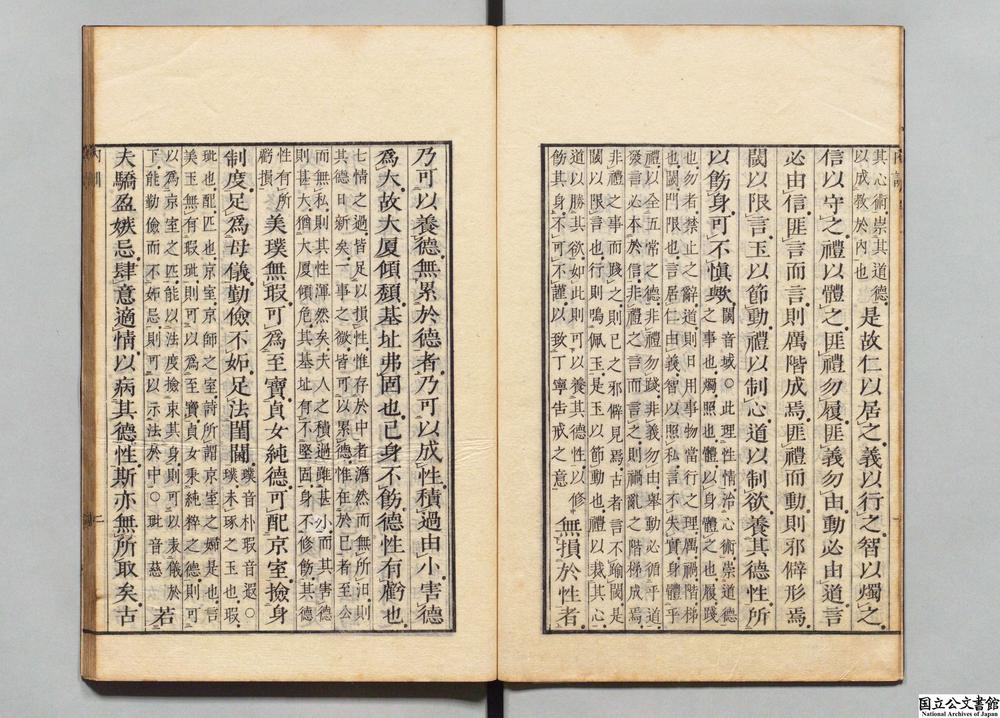 其心術崇其道德
以成教於內也
是故仁以居之義以行之智以燭之
信以守之禮以體之匪禮勿履匪義勿由動必由道言
必由信匪言而言則厲階成焉匪禮而動則邪僻形焉
閾以限言玉以節動禮以制心道以制欲養其德性所
以飭身可不慎歟
閾音域○此理性情治心術崇道德
之事也燭照也體以身體之也履踐
也勿者禁止之辭道則日用事物常行之理厲禍階梯
也閾門限也言居仁由義智以照私言不失實身體乎
禮以全五常之德非禮勿踐非義勿由舉動必循乎道
發言必本於信非禮之言而言之則禍亂之階梯成焉
非禮之事而踐之則已之邪僻見焉古者言不踰閾是
閾以限言也行則鳴佩玉是玉以節動也禮以裁其心
道以勝其欲如此則可以養其德性以修
飭其身不可不謹以致丁寧告戒之意
無損於性者
乃可以養德無累於德者乃可以成性積過由小害德
爲大故大厦傾頹基址弗固也己身不飭德性有虧也
七情之過皆足以損性惟存於中者澹然而無所汩則
其德日新矣一事之欲皆可以累德惟在於已者至公
而無私則其性渾然矣夫人之積過雖甚小而其害德
則甚大猶大厦傾危其基址有不堅固身不修飭其德
性有所
虧損
美璞無瑕可爲至寶貞女純德可配京室撿身
制度足爲母儀勤儉不妬足法閨閫
璞音朴瑕音遐○
璞未琢之玉也瑕
玼也配匹也京室京師之室詩所謂京室之婦是也言
美玉無有瑕玼則可以爲至寶貞女秉純粹之德則可
以爲京室之匹能以法度撿束其身則可以表儀於
下能勤儉而不妬忌則可以示法於中○玼音慈
若
夫驕盈嫉忌肆意適情以病其德性斯亦無所取矣古
二
国立公文書館
National Archives of Japan